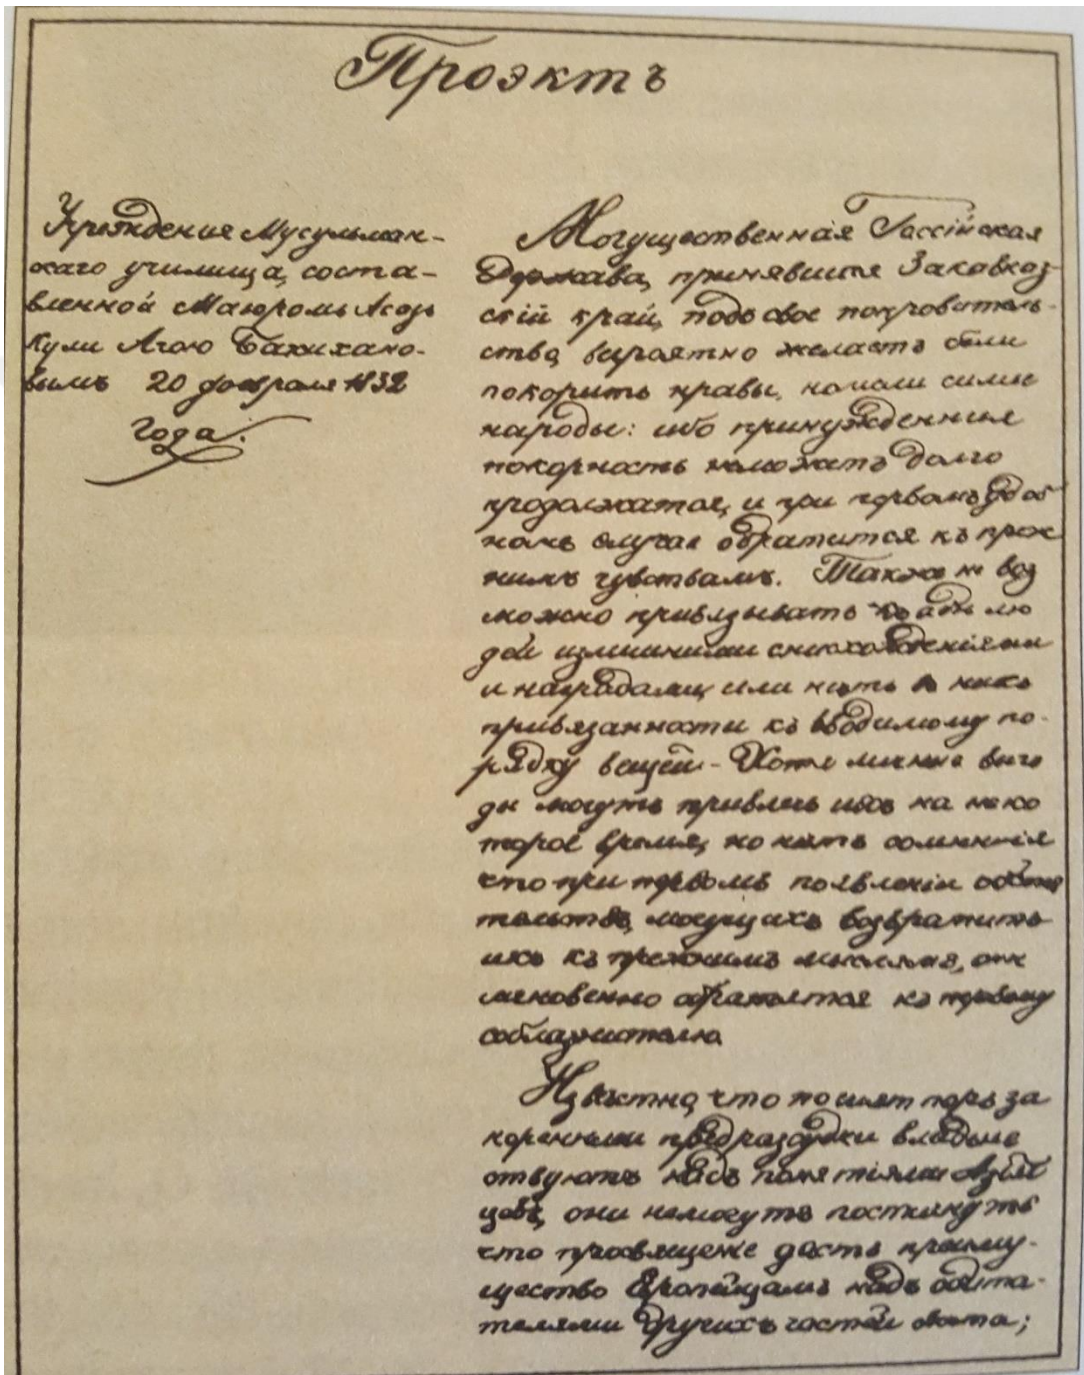 Проэктъ
Учреждение Мусульман-
скаго училища, соста-
вленной Маіоромъ Асадъ
Кули Агою Бакихано-
вымъ 20 февраля 1832
года.
Могущественная Россійская
Держава, принявшая Закавказ-
скій край, подъ свое покровитель-
ство, вероятно желаетъ
покорить нравы, нашли симъ
народы: ибо принужденная
покорность неможетъ долго
продолжатся, и при первомъ удоб
номъ случае обратится къ преж
нимъ чувствамъ. Также не воз
можно привязывать къ себѣ лю
дей излишними снисхожденіями
и наградами, или нетъ в нихъ
привязанности къ вводимому по-
рядку вещей - Хотя личные выго
ды могутъ привлечь ихъ на неко
торое время, но нетъ сомненія
что при первомъ появленіи обстоя
тельствъ, могущихъ возвратить
ихъ къ прежнимъ мыслямъ, они
мгновенно обратятся къ первому
соблазнителю.
Известно, что по сихъ поръ за
коренныи предразсудки владыче
ствуютъ надъ понятіями Азіят
цевъ, они немогутъ постигнуть
что просвящение даетъ преиму-
щество Европейцамъ надъ обита-
телями другихъ частей света;